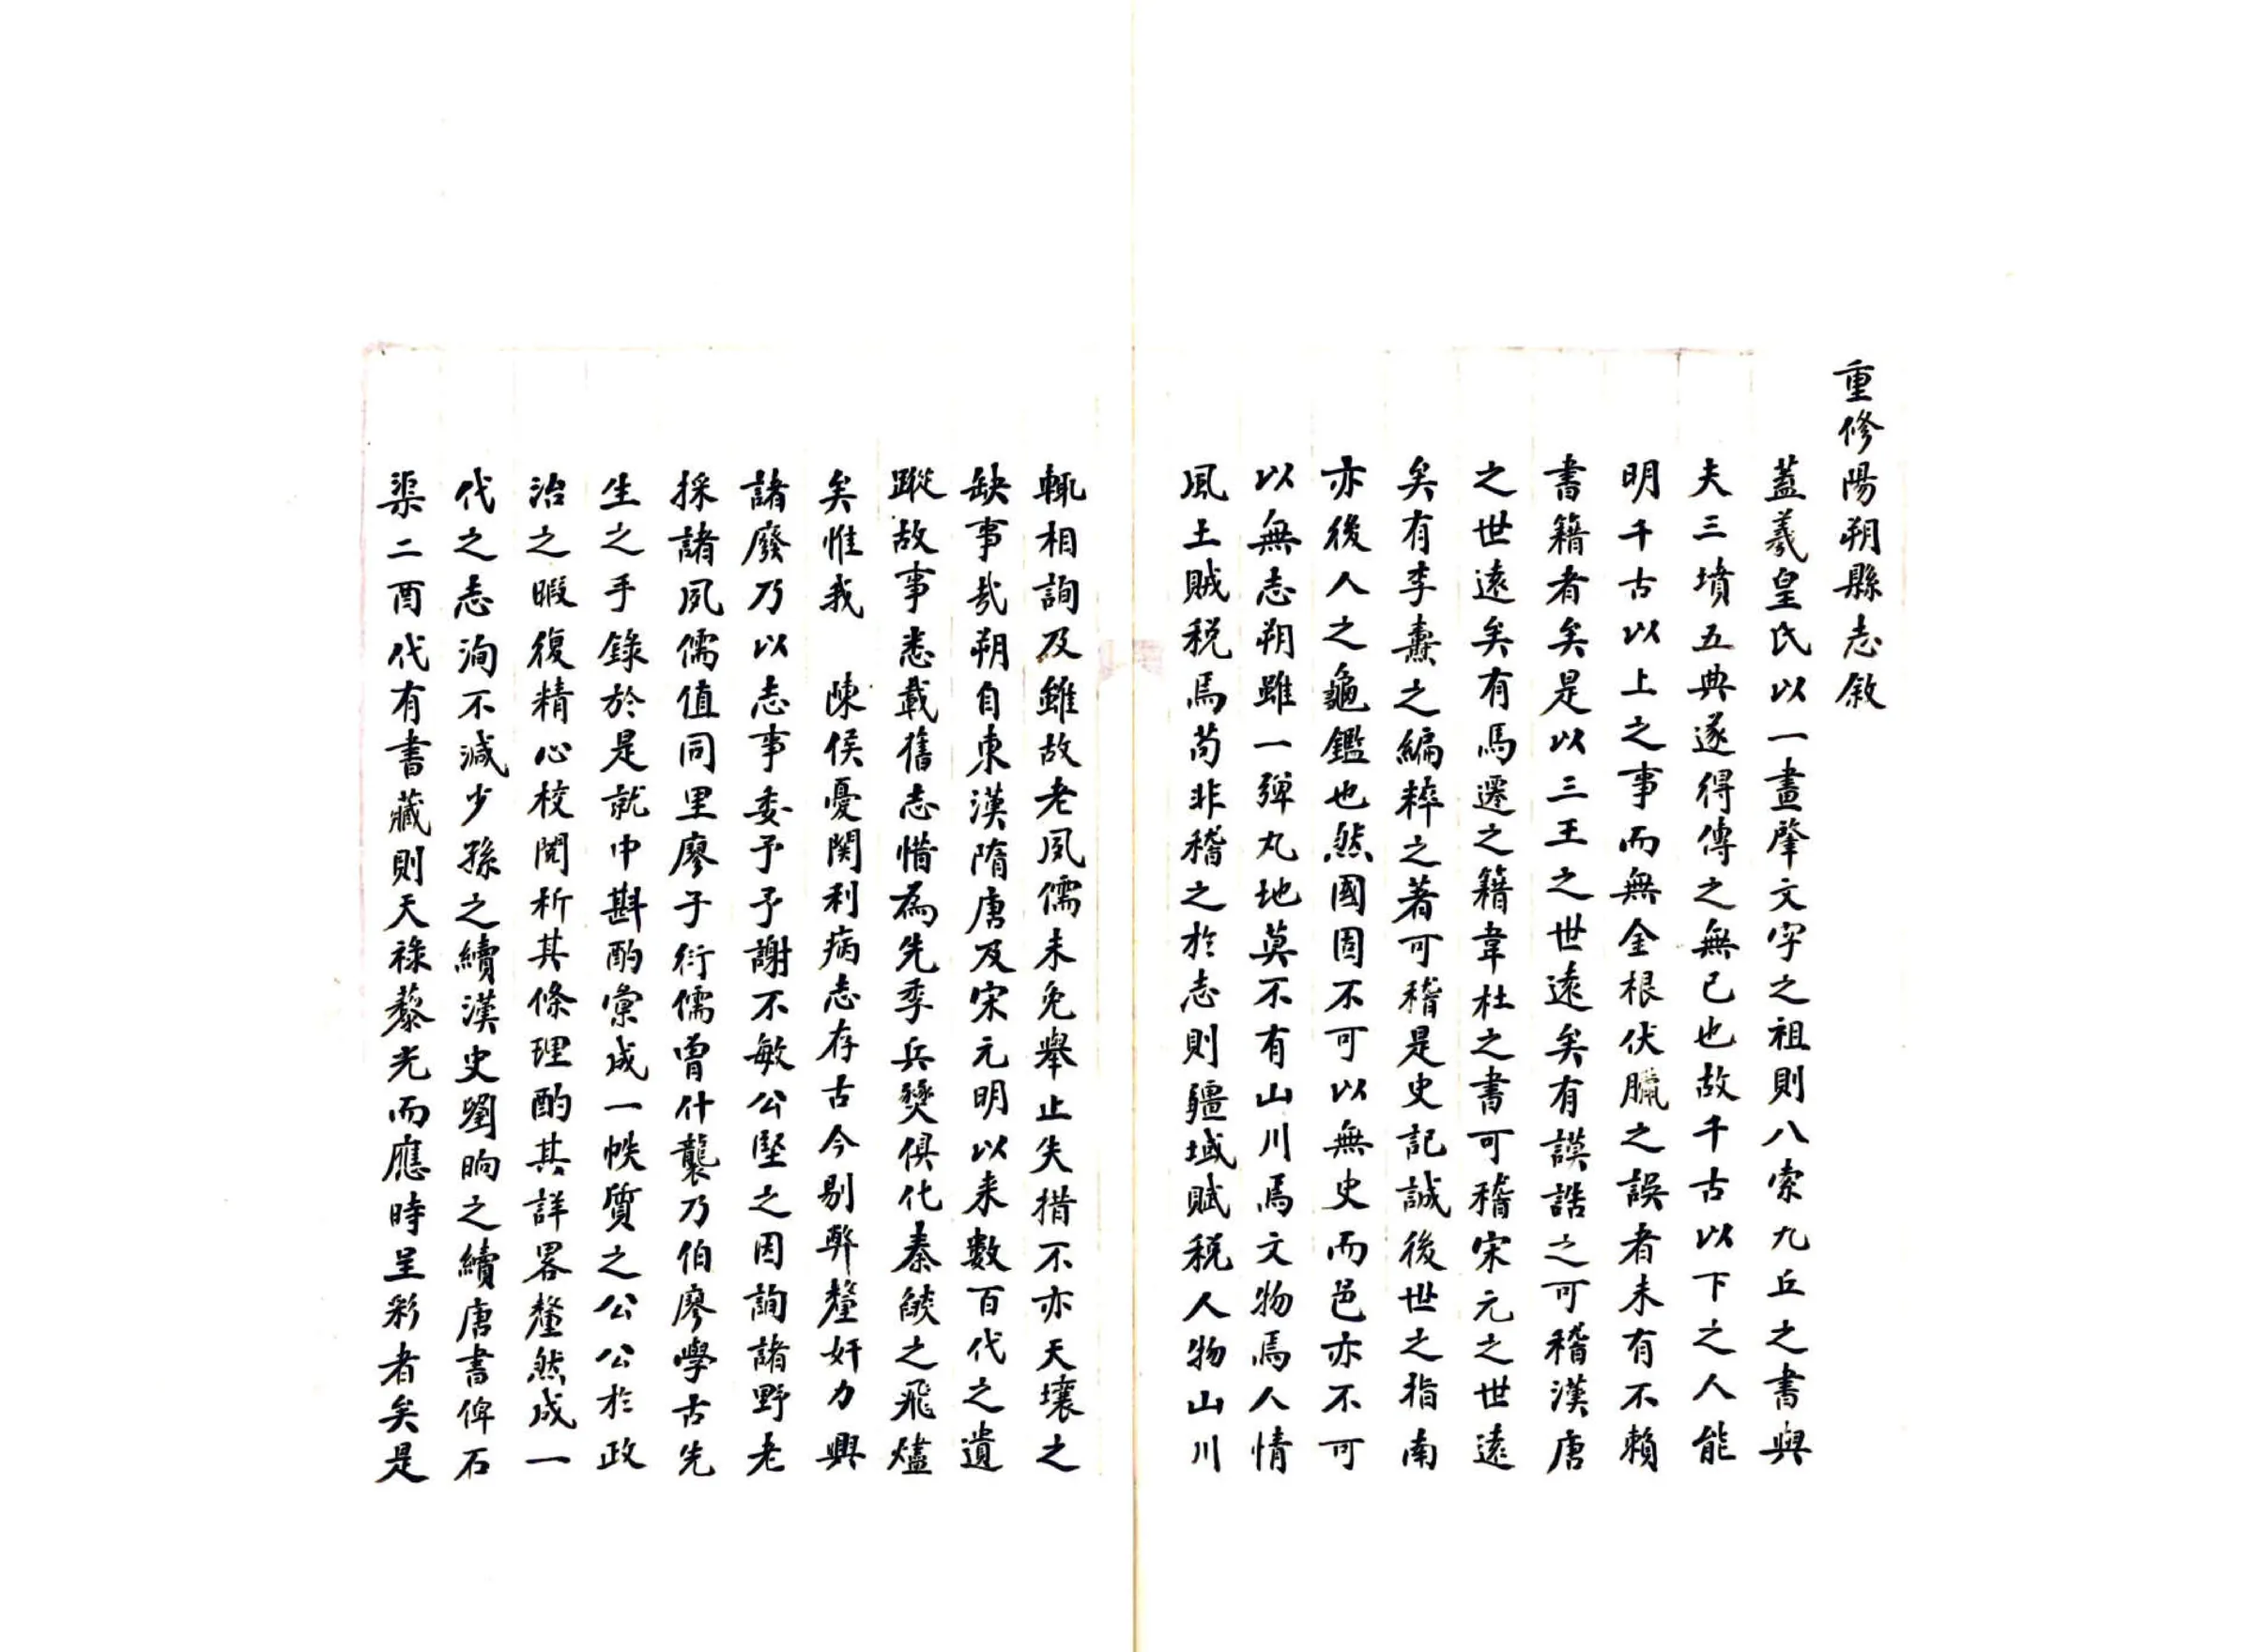 重修陽朔縣志敘
蓋羲皇氏以一畫肇文字之祖則八索九丘之書與
夫三墳五典遂得傳之無已也故千古以下之人能
明千古以上之事而無金根伏臘之誤者未有不賴
書籍者矣是以三王之世遠矣有謨誥之可稽漢唐
之世遠矣有馬遷之籍韋杜之書可稽宋元之世遠
矣有李燾之編粹之著可稽是史記誠後世之指南
亦後人之龜鑑也然國固不可以無史而邑亦不可
以無志朔雖一彈丸地莫不有山川焉文物焉人情
風土賊稅焉苟非稽之於志則疆域賦稅人物山川
輒相詢及雖故老夙儒未免舉止失措不亦天壤之
缺事哉朔自東漢隋唐及宋元明以來數百代之遺
蹤故事悉載舊志惜為先季兵燹俱化秦燄之飛燼
矣惟我 陳侯憂関利病志存古今剔弊釐奸力興
諸廢乃以志事委予予謝不敏公堅之因詢諸野老
採諸夙儒值同里廖子衍儒曾什襲乃伯廖學古先
生之手錄於是就中斟酌彙成一帙質之公公於政
治之暇復精心校閱析其條理酌其詳畧釐然成一
代之志洵不減少孫之續漢史劉昫之續唐書俾石
渠二酉代有書藏則天祿藜光而應時呈彩者矣是